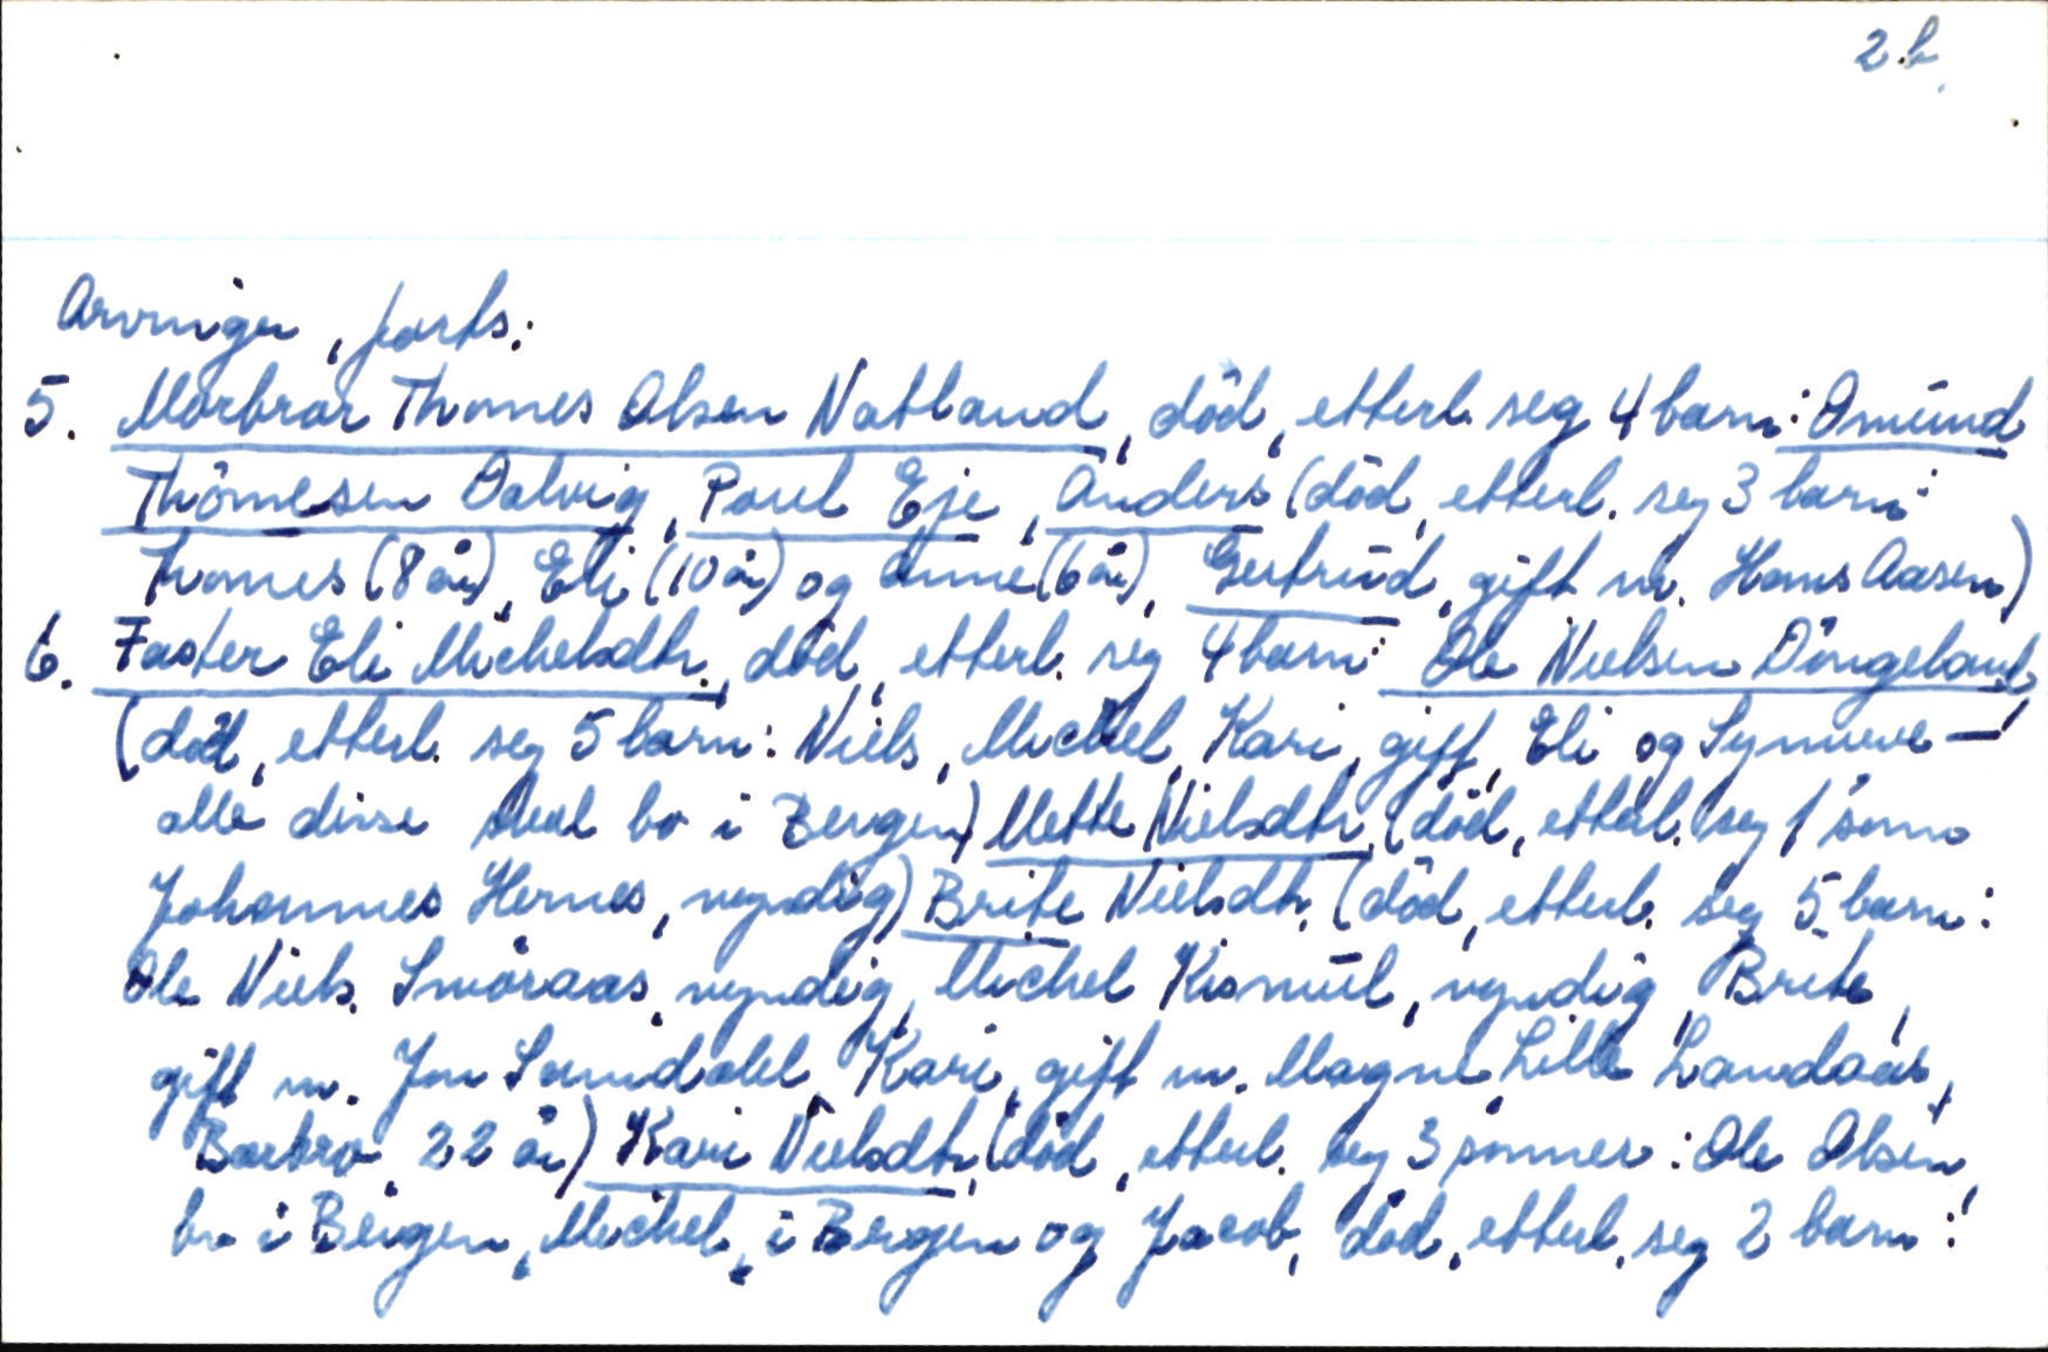 2.b.
Arvinger, forts:
5. Morbror Thomes Olsen Natland, död, etterl. seg 4 barn: Omund
Thomesen Dalvig, Poul Eje, Anders (död, etterl. seg 3 barn:
Thomes (8 år), Eli (10 år) og Anne (6 år), Gertrud, gift m. Hans Aasen)
6. Faster Eli Michelsdtr., död, etterl. seg 4 barn: Ole Nielsen Döngeland,
(död, etterl. seg 5 barn: Niels, Michel, Kari, gift, Eli og Synneve –
alle disse skal bo i Bergen) Mette Nielsdtr. (död, etterl. seg 1 sönn
Johannes Hernes, myndig) Brite Nielsdtr. (död, etterl. seg 5 barn:
Ole Niels. Smöraas, myndig, Michel Kismul, myndig, Brite,
gift m. Jon Samdahl, Kari, gift m. Magne Lille Landaas,
Barbro, 22 år) Kari Nielsdtr. (död, etterl. seg 3 sönner: Ole Olsen,
bor i Bergen, Michel, i Bergen og Jacob, död, etterl. seg 2 barn: